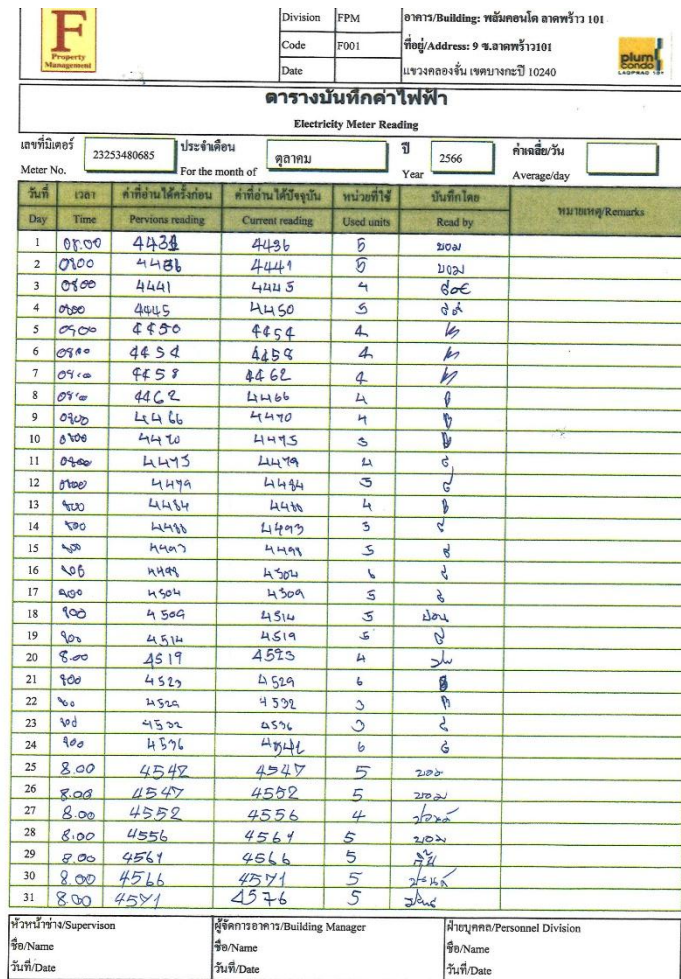 F
Property
Management
Division FPM อาคาร/Building: พลัมคอนโด ลาดพร้าว 101
Code F001 ที่อยู่/Address: 9 ซ.ลาดพร้าว101
Date แขวงคลองจั่น เขตบางกะปิ 10240
plum
condo
LADPRAO 101
ตารางบันทึกค่าไฟฟ้า
Electricity Meter Reading
เลขที่มิเตอร์ 23253480685 ประจำเดือน ตุลาคม ปี 2566 ค่าเฉลี่ย/วัน
Meter No. For the month of Year Average/day
วันที่ เวลา ค่าที่อ่านได้ครั้งก่อน ค่าที่อ่านได้ปัจจุบัน หน่วยที่ใช้ บันทึกโดย หมายเหตุ/Remarks
Day Time Pervions reading Current reading Used units Read by
1 08.00 4431 4436 5 บอม
2 0800 4436 4441 5 บอม
3 0800 4441 4445 4
4 0800 4445 4450 5
5 0800 4450 4454 4
6 0800 4454 4458 4
7 4458 4462 4
8 4462 4466 4
9 0800 4466 4470 4
10 0800 4470 4475 5
11 0800 4475 4479 4
12 0800 4479 4484 5
13 800 4484 4488 4
14 800 4488 4493 5
15 800 4493 4498 5
16 800 4498 4504 6
17 800 4504 4509 5
18 800 4509 4514 5
19 800 4514 4519 5
20 8.00 4519 4523 4
21 800 4523 4529 6
22 4529 4532 3
23 4532 4536 3
24 800 4536 4542 6
25 8.00 4542 4547 5 บอม
26 8.00 4547 4552 5 บอม
27 8.00 4552 4556 4
28 8.00 4556 4561 5 บอม
29 8.00 4561 4566 5
30 8.00 4566 4571 5
31 8.00 4571 4576 5
หัวหน้าช่าง/Supervison ผู้จัดการอาคาร/Building Manager ฝ่ายบุคคล/Personnel Division
ชื่อ/Name ชื่อ/Name ชื่อ/Name
วันที่/Date วันที่/Date วันที่/Date